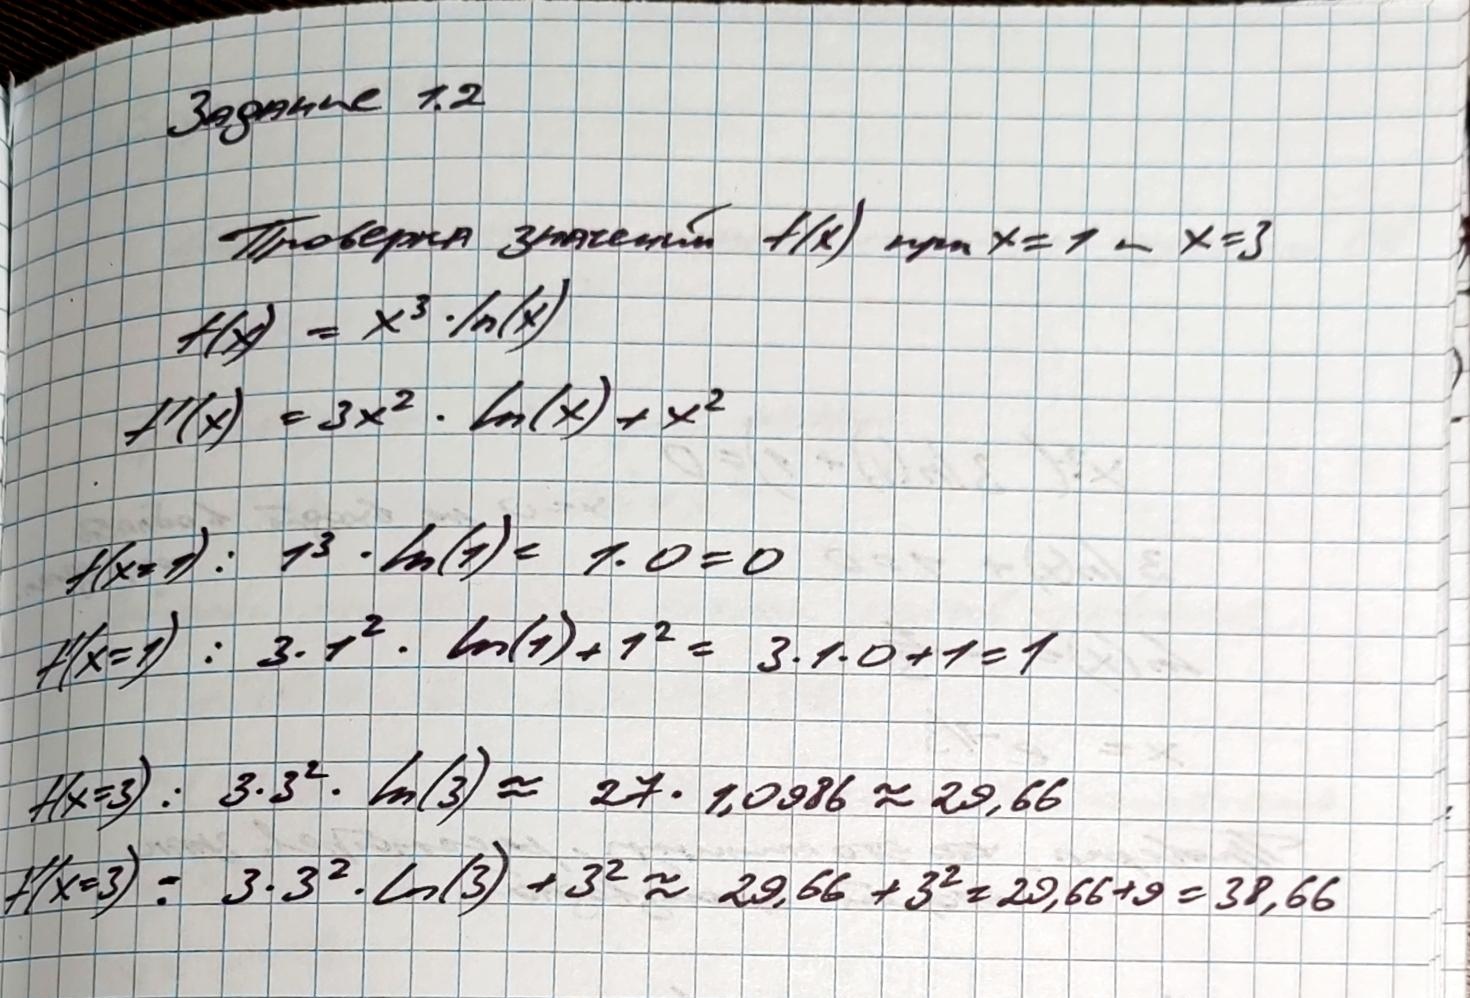 Задание 1.2
Проверка значений f(x) при x=1 и x=3
f(x) = x³ · ln(x)
f'(x) = 3x² · ln(x) + x²
f(x=1): 1³ · ln(1) = 1 · 0 = 0
f'(x=1): 3·1² · ln(1) + 1² = 3·1·0+1=1
f(x=3): 3·3² · ln(3) ≈ 27 · 1,0986 ≈ 29,66
f'(x=3): 3·3² · ln(3) + 3² ≈ 29,66 + 3² = 29,66+9 = 38,66